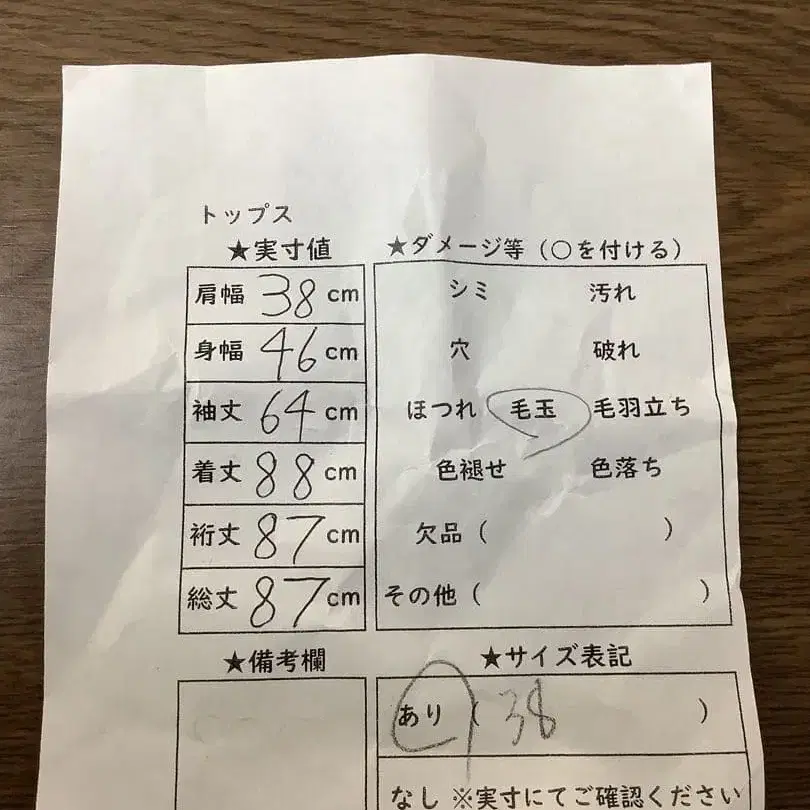 トップス
★実寸値
肩幅 38 cm
身幅 46 cm
袖丈 64 cm
着丈 88 cm
裄丈 87 cm
総丈 87 cm
★ダメージ等（○を付ける）
シミ 汚れ
穴 破れ
ほつれ 毛玉 毛羽立ち
色褪せ 色落ち
欠品（ ）
その他（ ）
★備考欄
★サイズ表記
あり（ 38 ）
なし ※実寸にてご確認ください